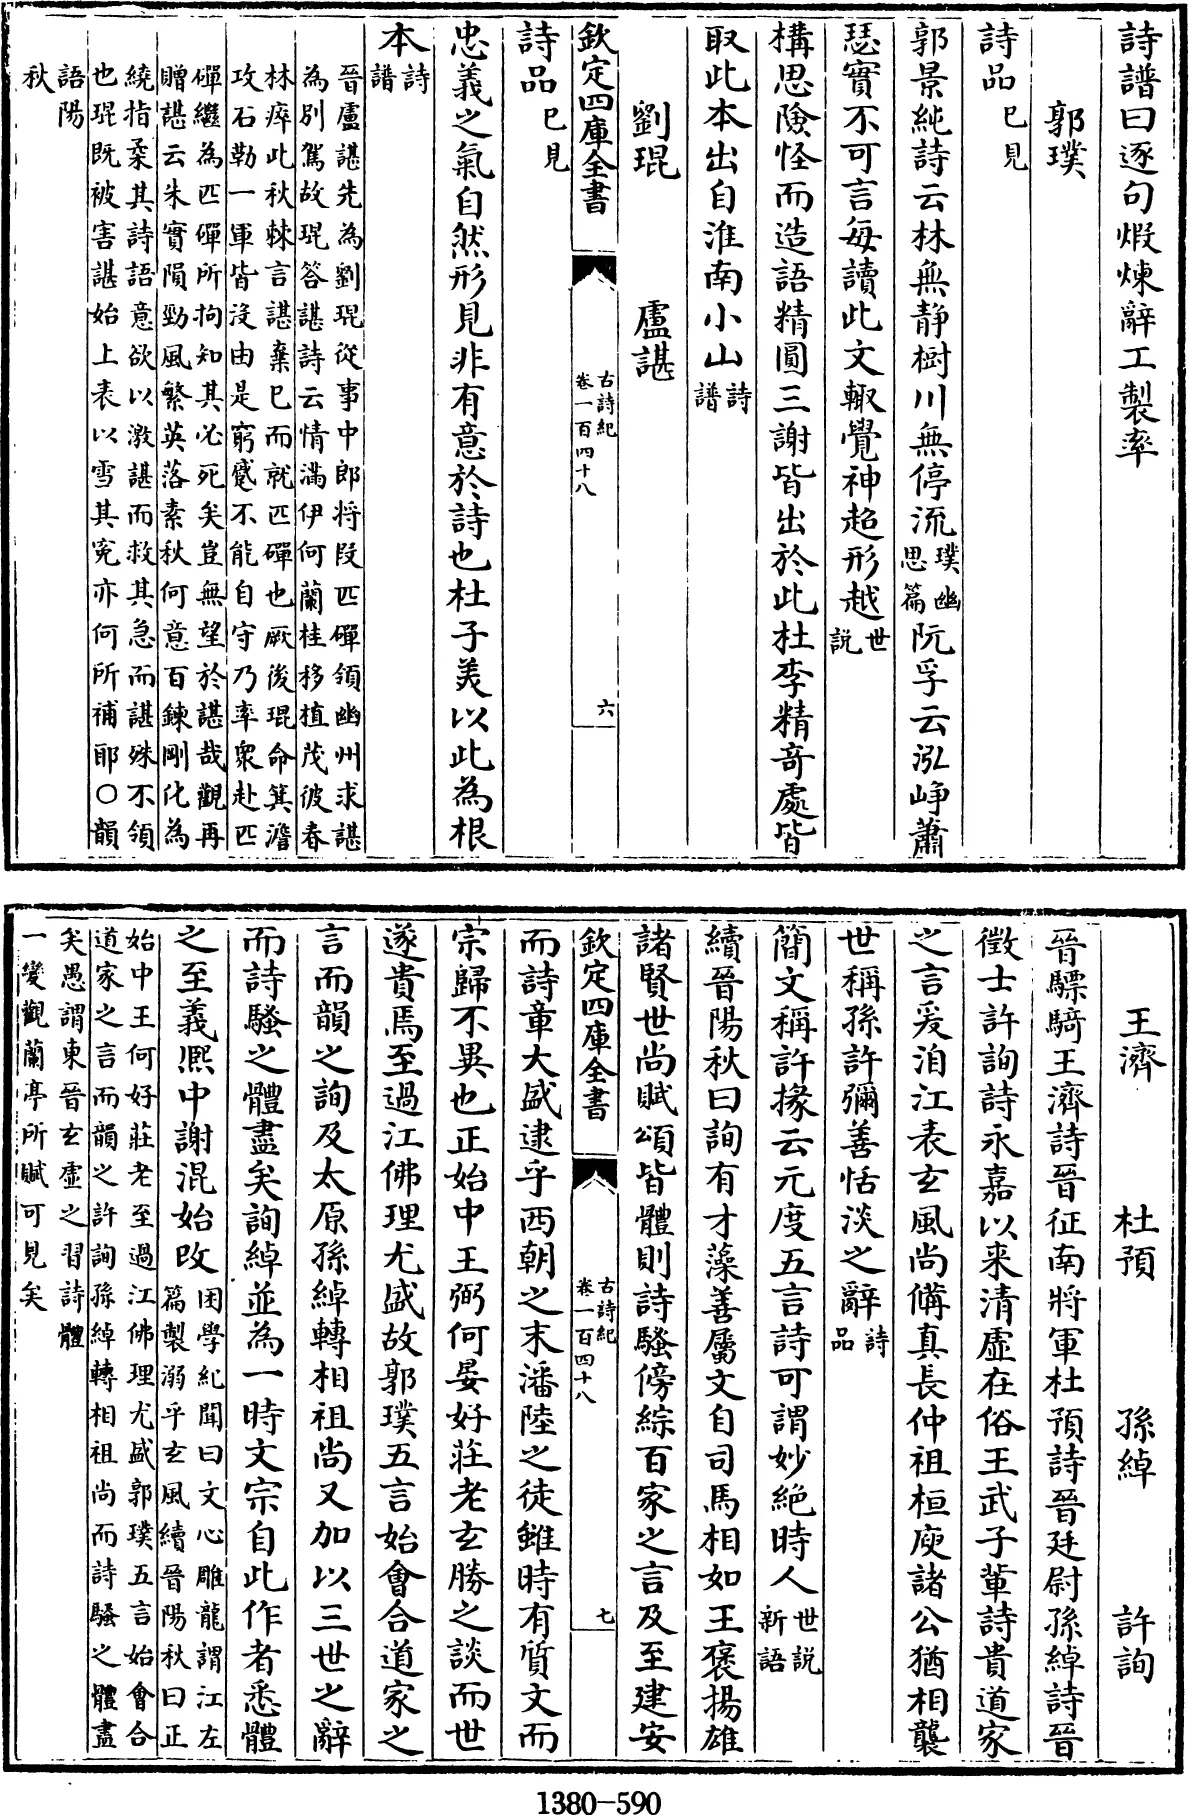 詩譜曰逐句煆煉辭工製率
郭璞
詩品已見
郭景純詩云林無静樹川無停流璞幽思篇阮孚云泓峥蕭
瑟實不可言每讀此文輙覺神超形越世說
構思險怪而造語精圓三謝皆出於此杜李精奇處皆
取此本出自淮南小山詩譜
劉琨　盧諶
欽定四庫全書　古詩紀卷一百四十八　六
詩品已見
忠義之氣自然形見非有意於詩也杜子美以此為根
本詩譜
晉盧諶先為劉琨從事中郎将段匹磾領幽州求諶
為別駕故琨答諶詩云情滿伊何蘭桂移植茂彼春
林瘁此秋棘言諶棄已而就匹磾也厥後琨命箕澹
攻石勒一軍皆没由是窮蹙不能自守乃率衆赴匹
磾繼為匹磾所拘知其必死矣豈無望於諶哉觀再
贈諶云朱實隕勁風繁英落素秋何意百鍊剛化為
繞指柔其詩語意欲以激諶而救其急而諶殊不領
也琨既被害諶始上表以雪其寃亦何所補耶○韻
語陽
秋
王濟　杜預　孫綽　許詢
晉驃騎王濟詩晉征南將軍杜預詩晉廷尉孫綽詩晉
徵士許詢詩永嘉以来清虛在俗王武子輩詩貴道家
之言爰洎江表玄風尚備真長仲祖桓庾諸公猶相襲
世稱孫許彌善恬淡之辭詩品
簡文稱許掾云元度五言詩可謂妙絶時人世說新語
續晉陽秋曰詢有才藻善屬文自司馬相如王褒揚雄
諸賢世尚賦頌皆體則詩騷傍綜百家之言及至建安
欽定四庫全書　古詩紀卷一百四十八　七
而詩章大盛逮乎西朝之末潘陸之徒雖時有質文而
宗歸不異也正始中王弼何晏好莊老玄勝之談而世
遂貴焉至過江佛理尤盛故郭璞五言始會合道家之
言而韻之詢及太原孫綽轉相祖尚又加以三世之辭
而詩騷之體盡矣詢綽並為一時文宗自此作者悉體
之至義熈中謝混始改困學紀聞曰文心雕龍謂江左篇製溺乎玄風續晉陽秋曰正
始中王何好莊老至過江佛理尤盛郭璞五言始會合
道家之言而韻之許詢孫綽轉相祖尚而詩騷之體盡
矣愚謂東晉玄虛之習詩體
一變觀蘭亭所賦可見矣
1380-590